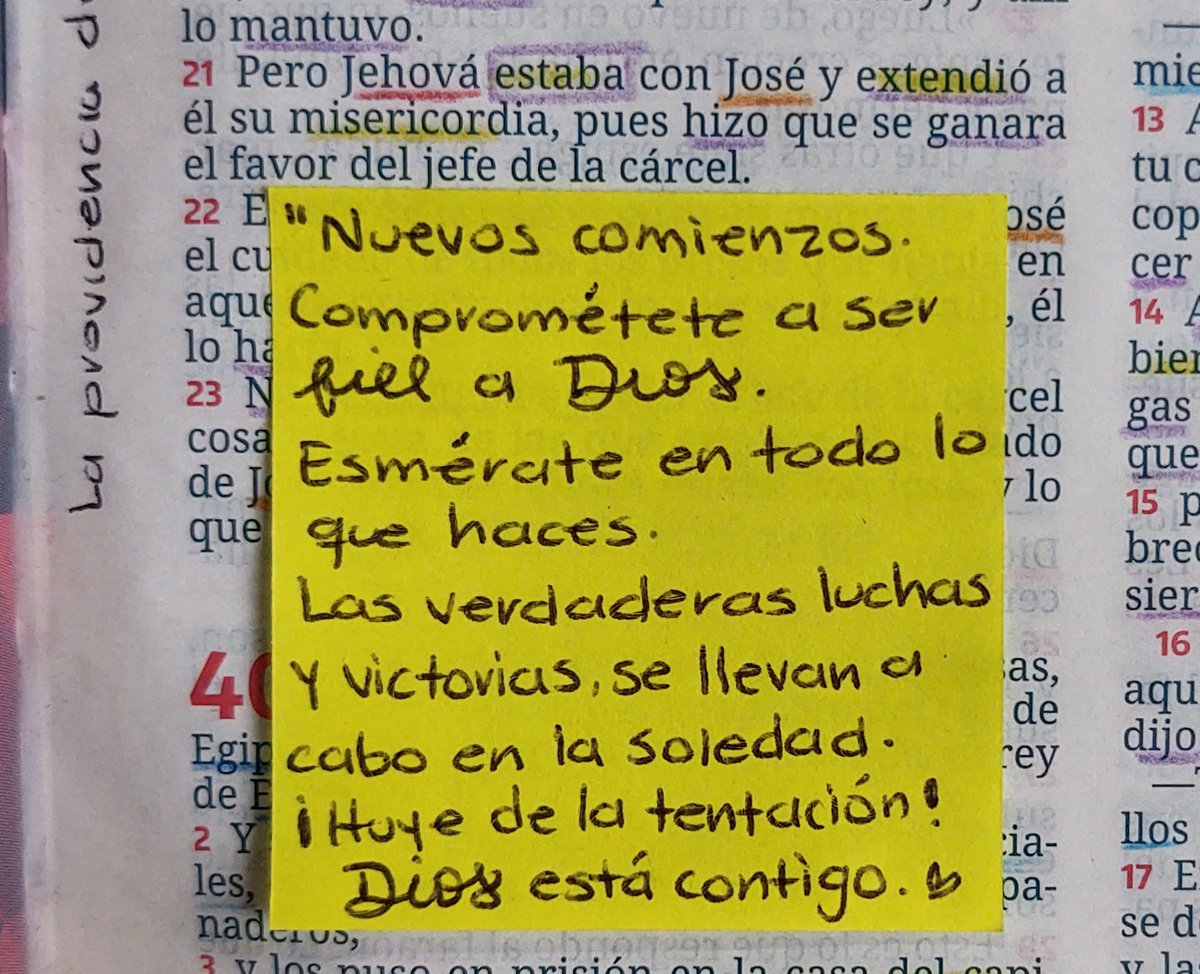 La providencia d
lo mantuvo.
21 Pero Jehová estaba con José y extendió a
él su misericordia, pues hizo que se ganara
el favor del jefe de la cárcel.
22 E
osé
el cu
en
aque
, él
lo ha
23 N
cel
cosa
ndo
de Jo
y lo
que
"Nuevos comienzos.
Comprométete a ser
fiel a Dios.
Esmérate en todo lo
que haces.
Las verdaderas luchas
y victorias, se llevan a
cabo en la soledad.
¡Huye de la tentación!
Dios está contigo.
40
sas,
de
Egip
rey
de E
2 Y
cia-
les,
pa-
naderos,
3 y los puso en prisión en la casa del capi
mie
13 A
tu c
cop
cer
14 A
bien
gas
que
15 p
brec
sier
16
aqu
dijo
llos
17 E
se d
y la